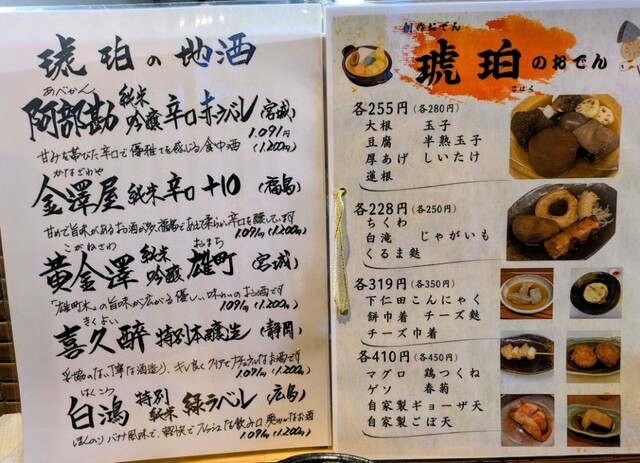 琥珀の地酒
あべかん
阿部勘 純米吟醸 辛口 赤ラベル (宮城)
1.091円
甘みを帯びた辛口で優雅さも感じる食中酒 (1.200円)
かなざわや
金澤屋 純米 辛口 +10 (福島)
1.091円(1.200円)
こがねさわ おまち
黄金澤 純米吟醸 雄町 (宮城)
「雄町米」の旨味が広がる優しい味わいのお酒です
1.091円(1.200円)
きくよい
喜久酔 特別本醸造 (静岡)
妥協のない丁寧な酒造り、キレ良くクリアでナチュラルなお酒です
1.091円(1.200円)
はくこう
白鴻 特別純米 緑ラベル (広島)
ほんのりバナナ風味で、軽快でフレッシュな飲み口 爽やかなお酒
1.091円(1.200円)
創作おでん
琥珀のおでん
こはく
各255円(各280円)
大根 玉子
豆腐 半熟玉子
厚あげ しいたけ
蓮根
各228円(各250円)
ちくわ
白滝 じゃがいも
くるま麩
各319円(各350円)
下仁田こんにゃく
餅巾着 チーズ麩
チーズ巾着
各410円(各450円)
マグロ 鶏つくね
ゲソ 春菊
自家製ギョーザ天
自家製ごぼ天